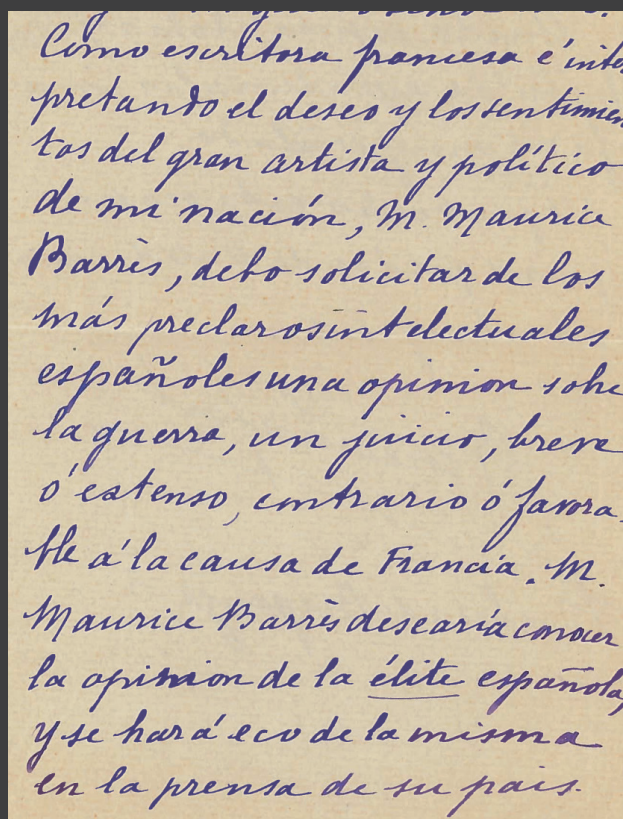 Como escritora francesa é inter
pretando el deseo y los sentimien
tos del gran artista y político
de mi nación, M. Maurice
Barrès, debo solicitar de los
más preclaros intelectuales
españoles una opinion sobre
la guerra, un juicio, breve
ó estenso, contrario ó favora-
ble á la causa de Francia. M.
Maurice Barrès desearía conocer
la opinion de la élite española,
y se hará eco de la misma
en la prensa de su pais.